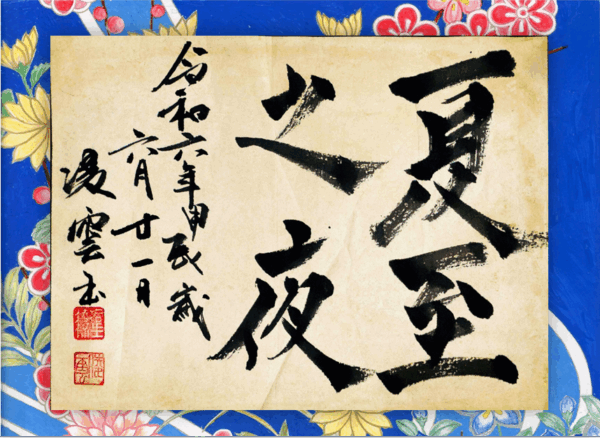 夏至
之夜
令和六年甲辰歳
六月廿一日
凌雲書